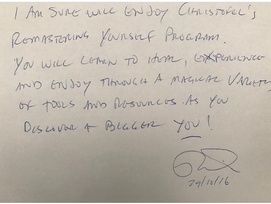 I AM SURE WILL ENJOY CHRISTOFEL'S
REMASTERING YOURSELF PROGRAM.
YOU WILL LEARN TO HEAL, EXPERIENCE
AND ENJOY THROUGH A MAGICAL VARIETY
OF TOOLS AND RESOURCES AS YOU
DISCOVER A BIGGER YOU!
29/10/16